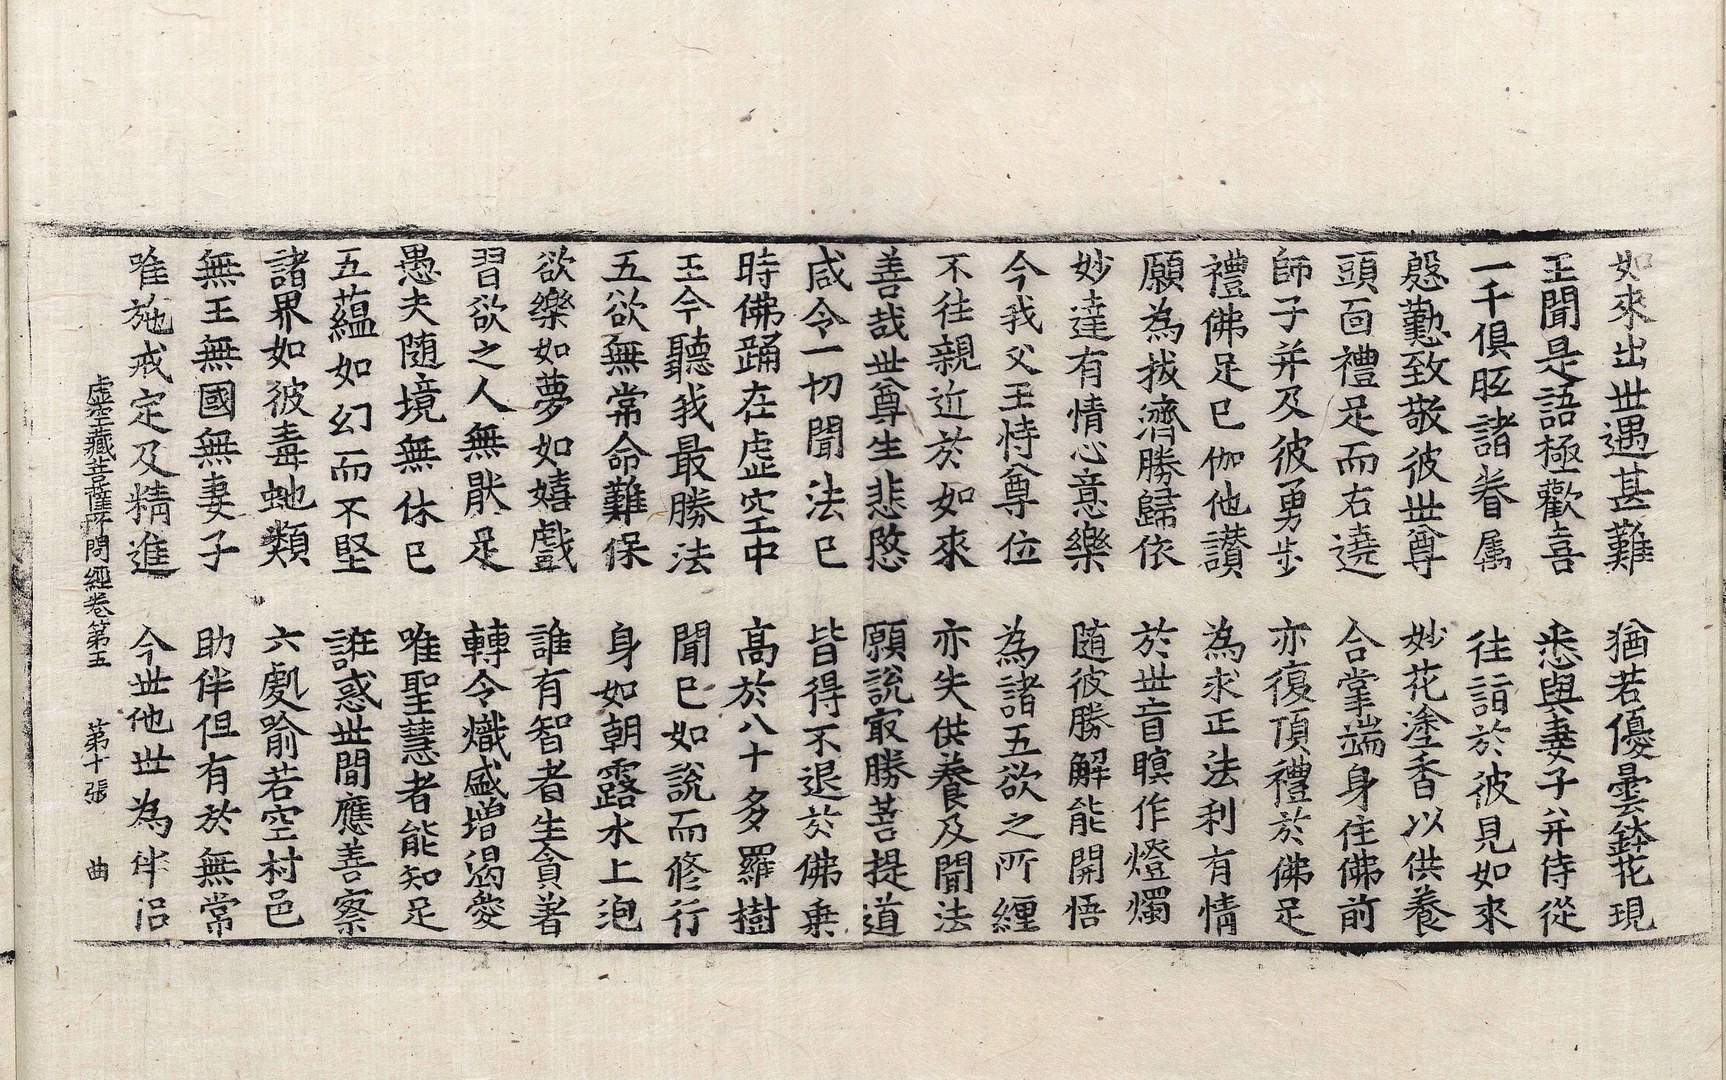 如來出世遇甚難　猶若優曇鉢花現
王聞是語極歡喜　悉與妻子并侍從
一千俱胝諸眷属　往詣於彼見如來
慇懃致敬彼世尊　妙花塗香以供養
頭面禮足而右遶　合掌端身住佛前
師子并及彼勇步　亦復頂禮於佛足
禮佛足已伽他讃　為求正法利有情
願為拔濟勝歸依　於世盲瞑作燈燭
妙達有情心意樂　随彼勝解能開悟
今我父王恃尊位　為諸五欲之所纏
不往親近於如來　亦失供養及聞法
善哉世尊生悲愍　願說㝡勝菩提道
咸令一切聞法已　皆得不退於佛乗
時佛踊在虛空中　高於八十多羅樹
王今聽我最勝法　聞已如說而修行
五欲無常命難保　身如朝露水上泡
欲樂如夢如嬉戲　誰有智者生貪著
習欲之人無猒足　轉令熾盛增渴愛
愚夫随境無休已　唯聖慧者能知足
五蘊如幻而不堅　誑惑世間應善察
諸界如彼毒虵類　六處喻若空村邑
無王無國無妻子　助伴但有於無常
唯施戒定及精進　今世他世為伴侶
虛空藏菩薩所問經卷第五　第十張　曲